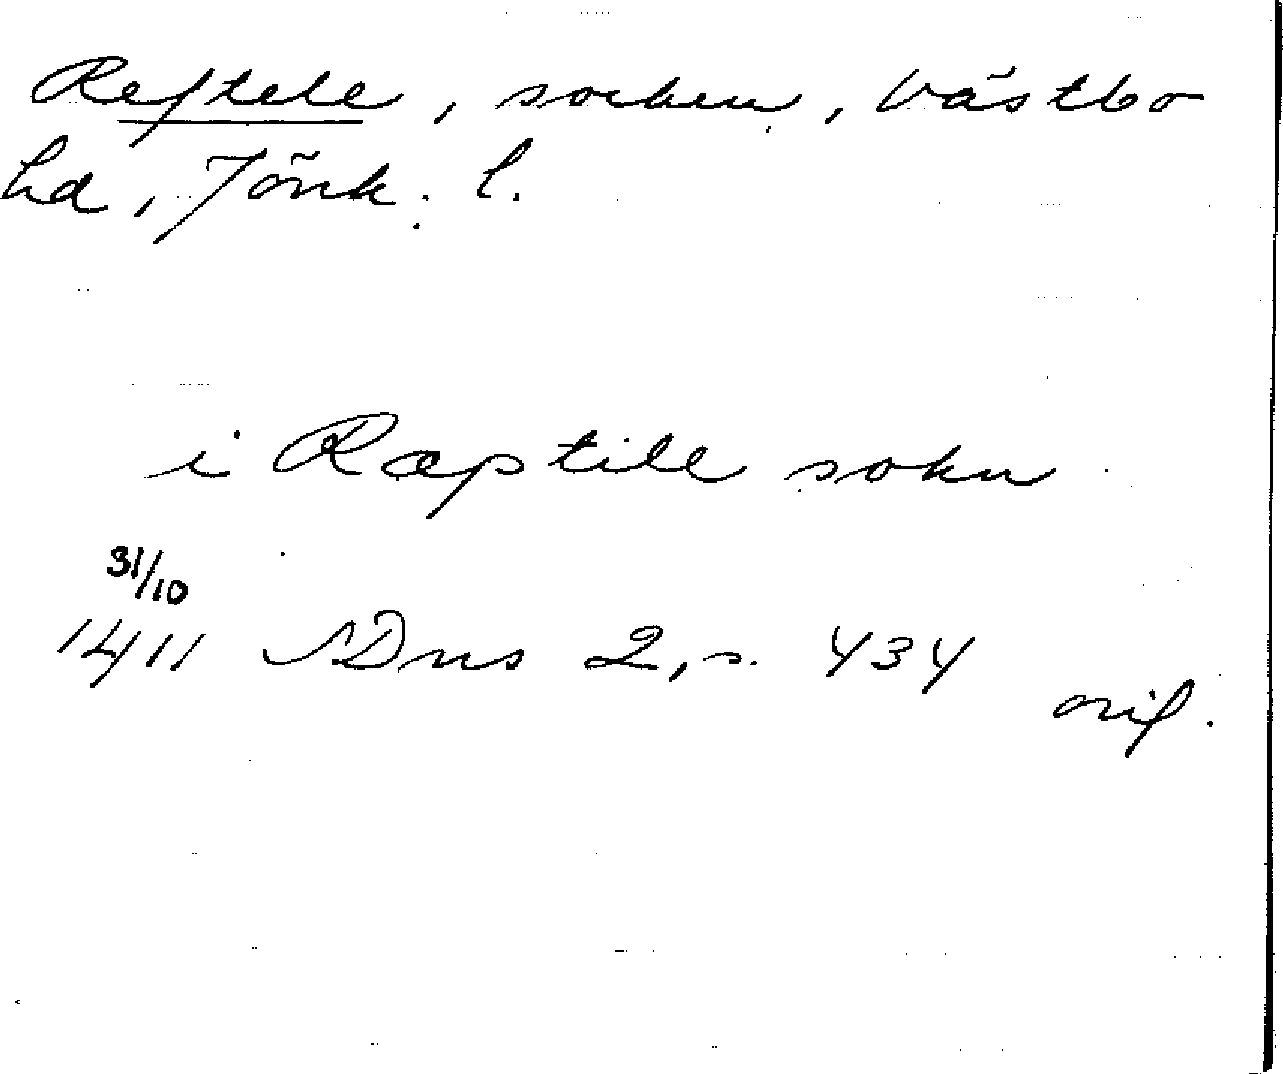 Reftele, socken, Västbo
hd, Jönk. l.
i Ræptile sokn
31/10
1411 SDns 2, s. 434
orig.